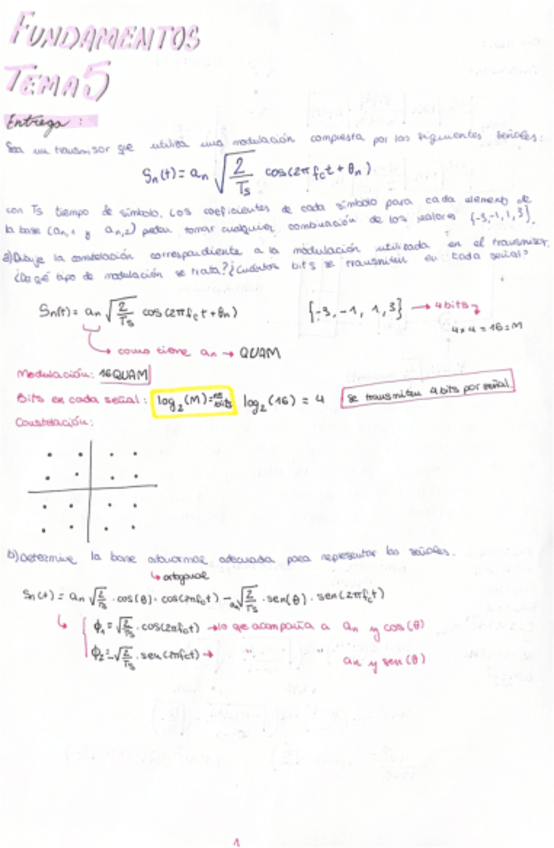 FUNDAMENTOS
TEMA 5
Entrega:
Sea un transmisor que utiliza una modulación compuesta por las siguientes señales:
Sn(t) = an √(2/Ts) cos(2πfct + θn)
con Ts tiempo de símbolo. Los coeficientes de cada símbolo para cada elemento de
la base (an,1 y an,2) pueden tomar cualquier combinación de los valores {-3,-1,1,3}.
a) Dibuje la constelación correspondiente a la modulación utilizada en el transmisor.
¿De qué tipo de modulación se trata? ¿Cuántos bits se transmiten en cada señal?
Sn(t) = an √(2/Ts) cos(2πfct + θn) {-3, -1, 1, 3} → 4bits
4x4 = 16 = M
→ como tiene an → QUAM
Modulación: 16QUAM
Bits en cada señal: log2(M) = nº bits log2(16) = 4 se transmiten 4 bits por señal
Constelación:
b) Determine la base ortonormal adecuada para representar las señales.
↳ ortogonal
Sn(t) = an √(2/Ts) · cos(θ) · cos(2πfct) - an √(2/Ts) · sen(θ) · sen(2πfct)
ϕ1 = √(2/Ts) · cos(2πfct) → lo que acompaña a an y cos(θ)
ϕ2 = -√(2/Ts) · sen(2πfct) → " " an y sen(θ)
1